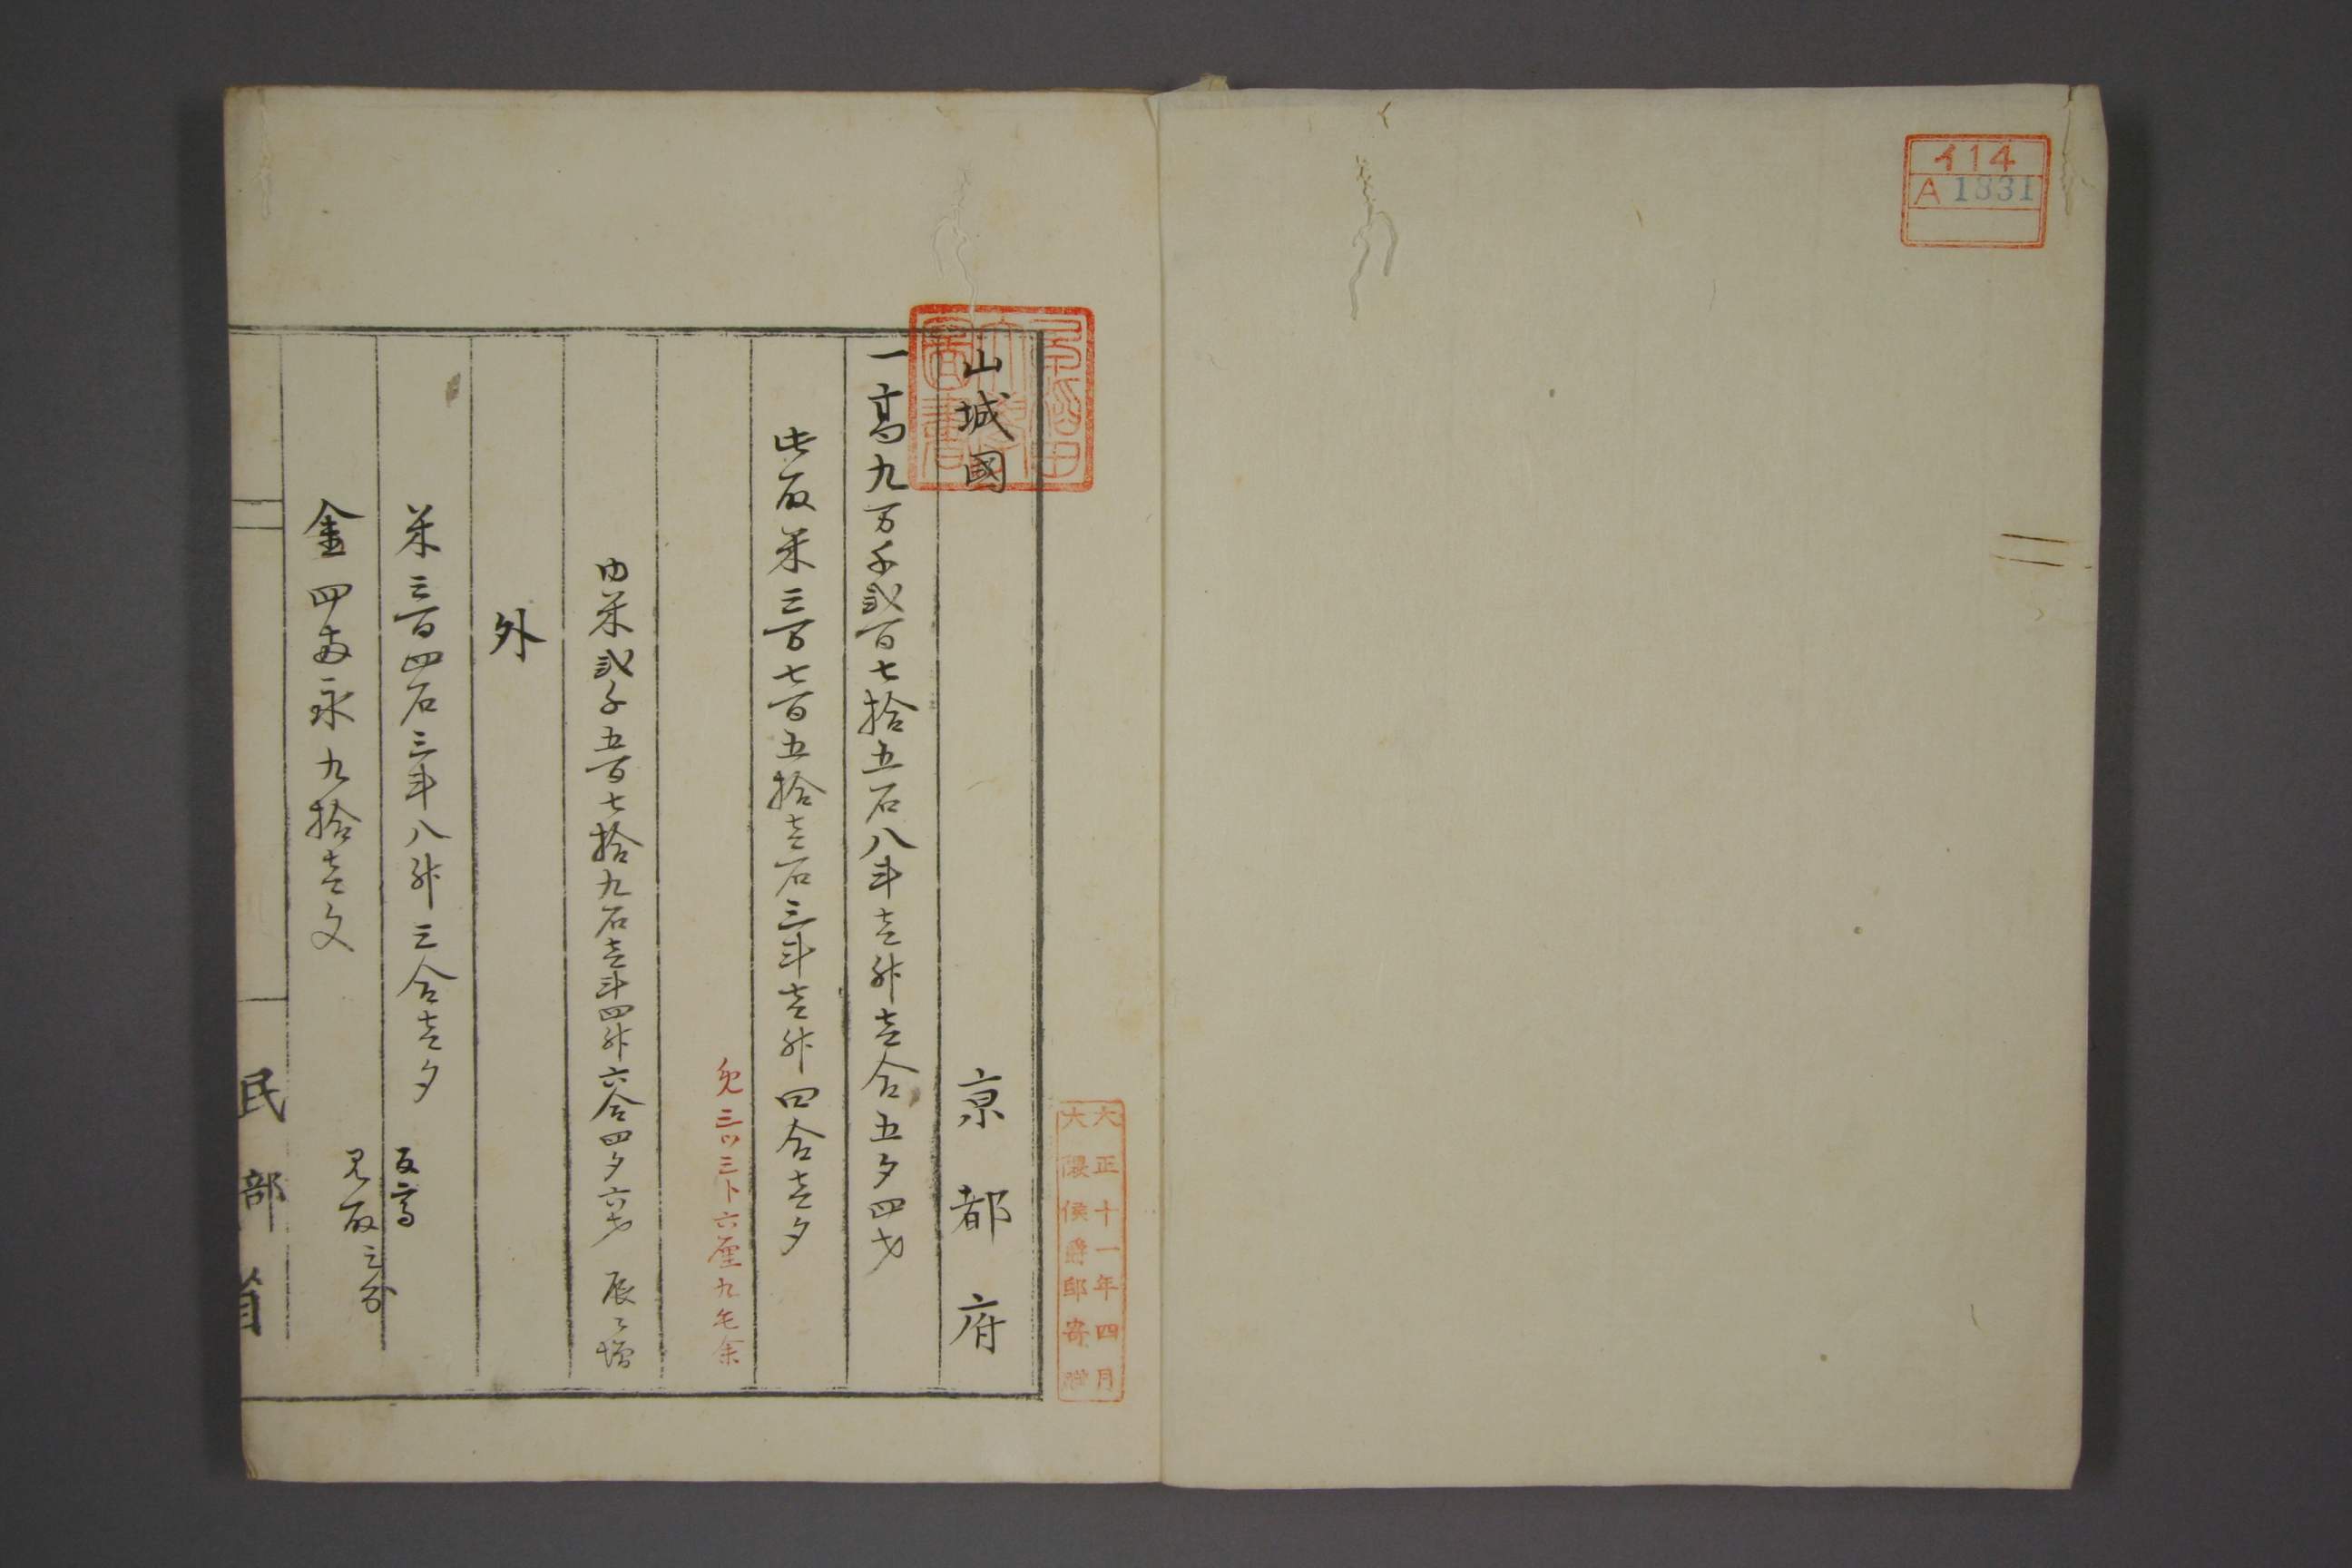 イ14
A 1331
早稲田
大學
圖書
大正十一年四月
大隈侯爵邸寄贈
山城國 京都府
一高九万千弐百七拾五石八斗壱升壱合五夕四才
此取米三万七百五拾壱石三斗壱升四合壱夕
免三ツ三分六厘九毛余
内米弐千五百七拾九石壱斗四升六合四夕六才 辰ゟ増
外
米三百四石三斗八升三合壱夕
反高
見取之分
金四両永九拾壱文
民部省